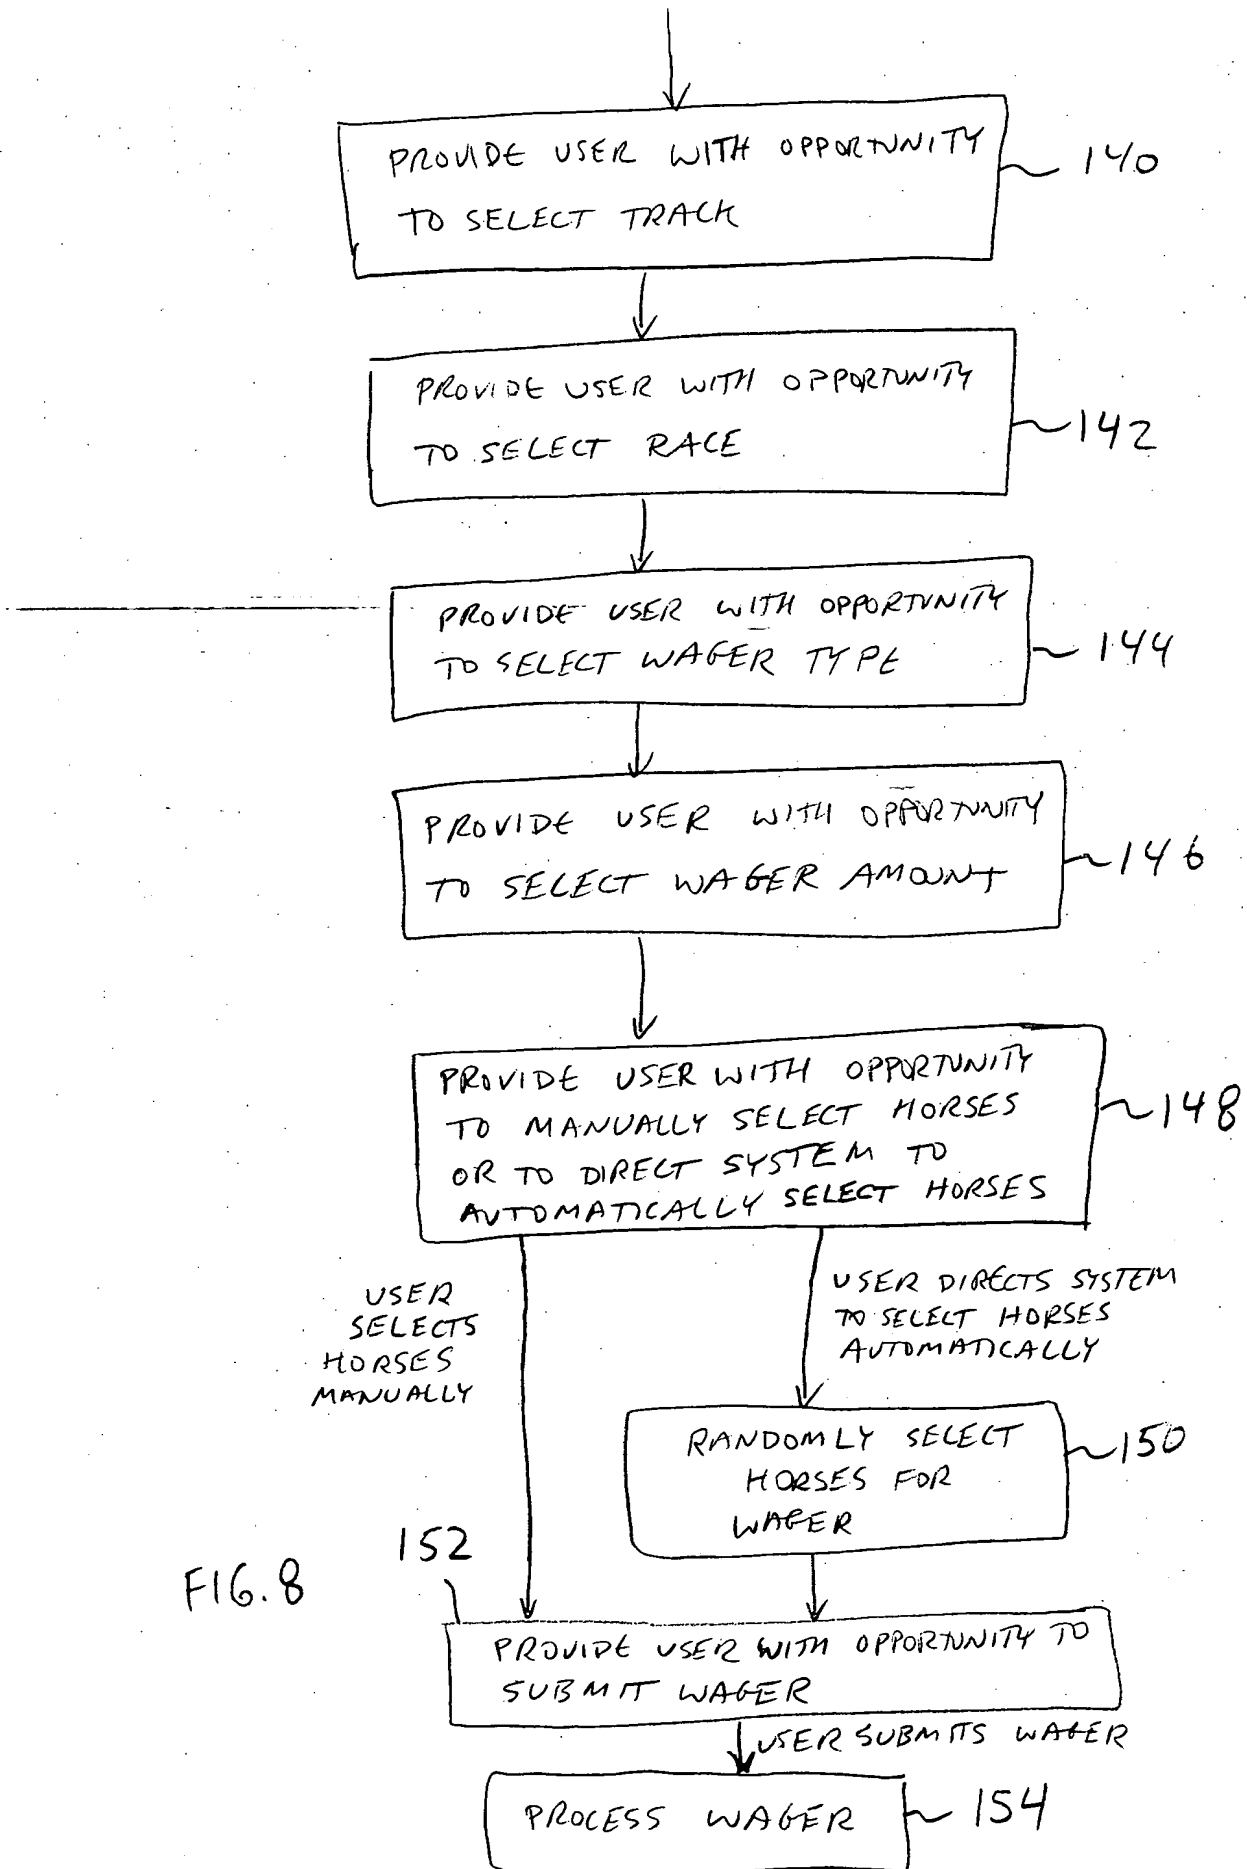 PROVIDE USER WITH OPPORTUNITY
TO SELECT TRACK
140
PROVIDE USER WITH OPPORTUNITY
TO SELECT RACE
142
PROVIDE USER WITH OPPORTUNITY
TO SELECT WAGER TYPE
144
PROVIDE USER WITH OPPORTUNITY
TO SELECT WAGER AMOUNT
146
PROVIDE USER WITH OPPORTUNITY
TO MANUALLY SELECT HORSES
OR TO DIRECT SYSTEM TO
AUTOMATICALLY SELECT HORSES
148
USER
SELECTS
HORSES
MANUALLY
USER DIRECTS SYSTEM
TO SELECT HORSES
AUTOMATICALLY
RANDOMLY SELECT
HORSES FOR
WAGER
150
152
FIG. 8
PROVIDE USER WITH OPPORTUNITY TO
SUBMIT WAGER
USER SUBMITS WAGER
PROCESS WAGER
154